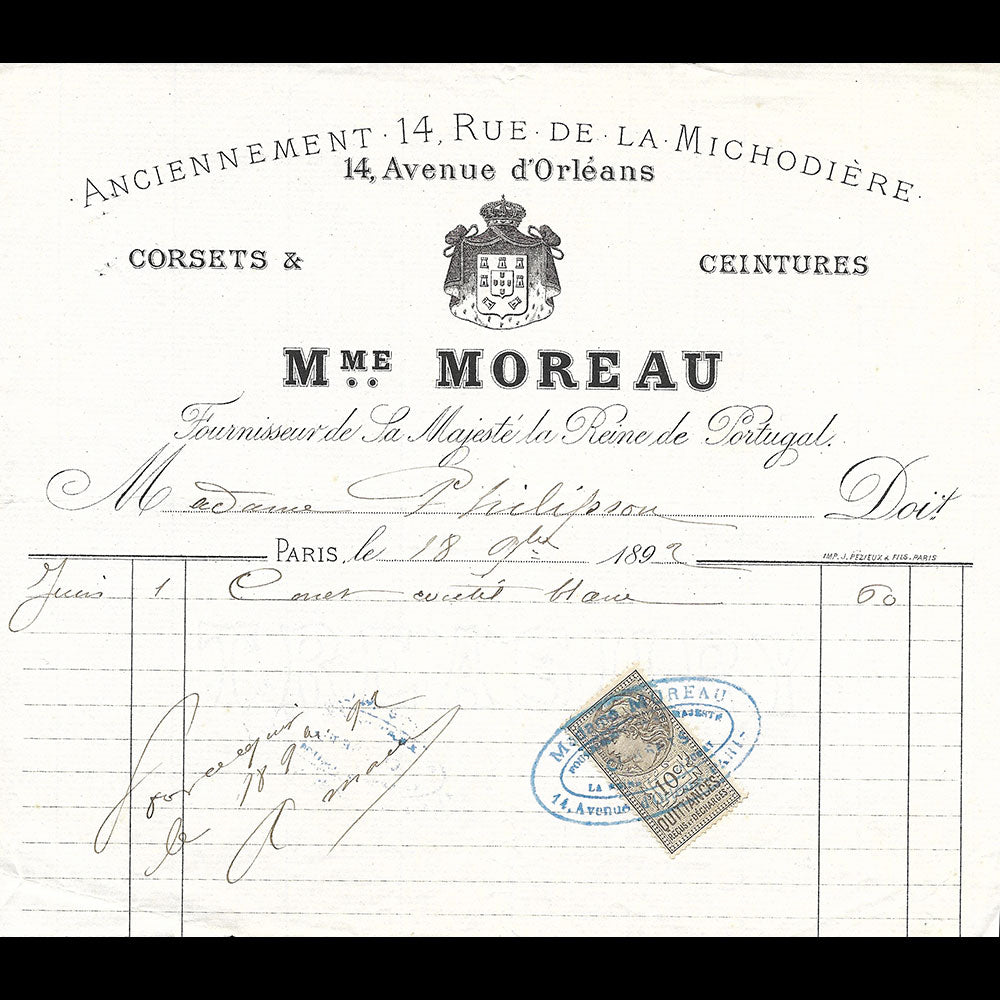 ANCIENNEMENT · 14, RUE · DE · LA · MICHODIÈRE ·
14, Avenue d'Orléans
CORSETS & CEINTURES
MME MOREAU
Fournisseur de Sa Majesté la Reine de Portugal.
Madame Philipson Doit
PARIS, le 18 9bre 1892
IMP. J. PÉZIEUX & FILS. PARIS
Juin 1 Corset coutil blanc 60
Pour acquit
le 18 9bre 92
MOREAU
MAJESTÉ
LA
14, Avenue
10c
QUITTANCES
REÇUS & DÉCHARGES